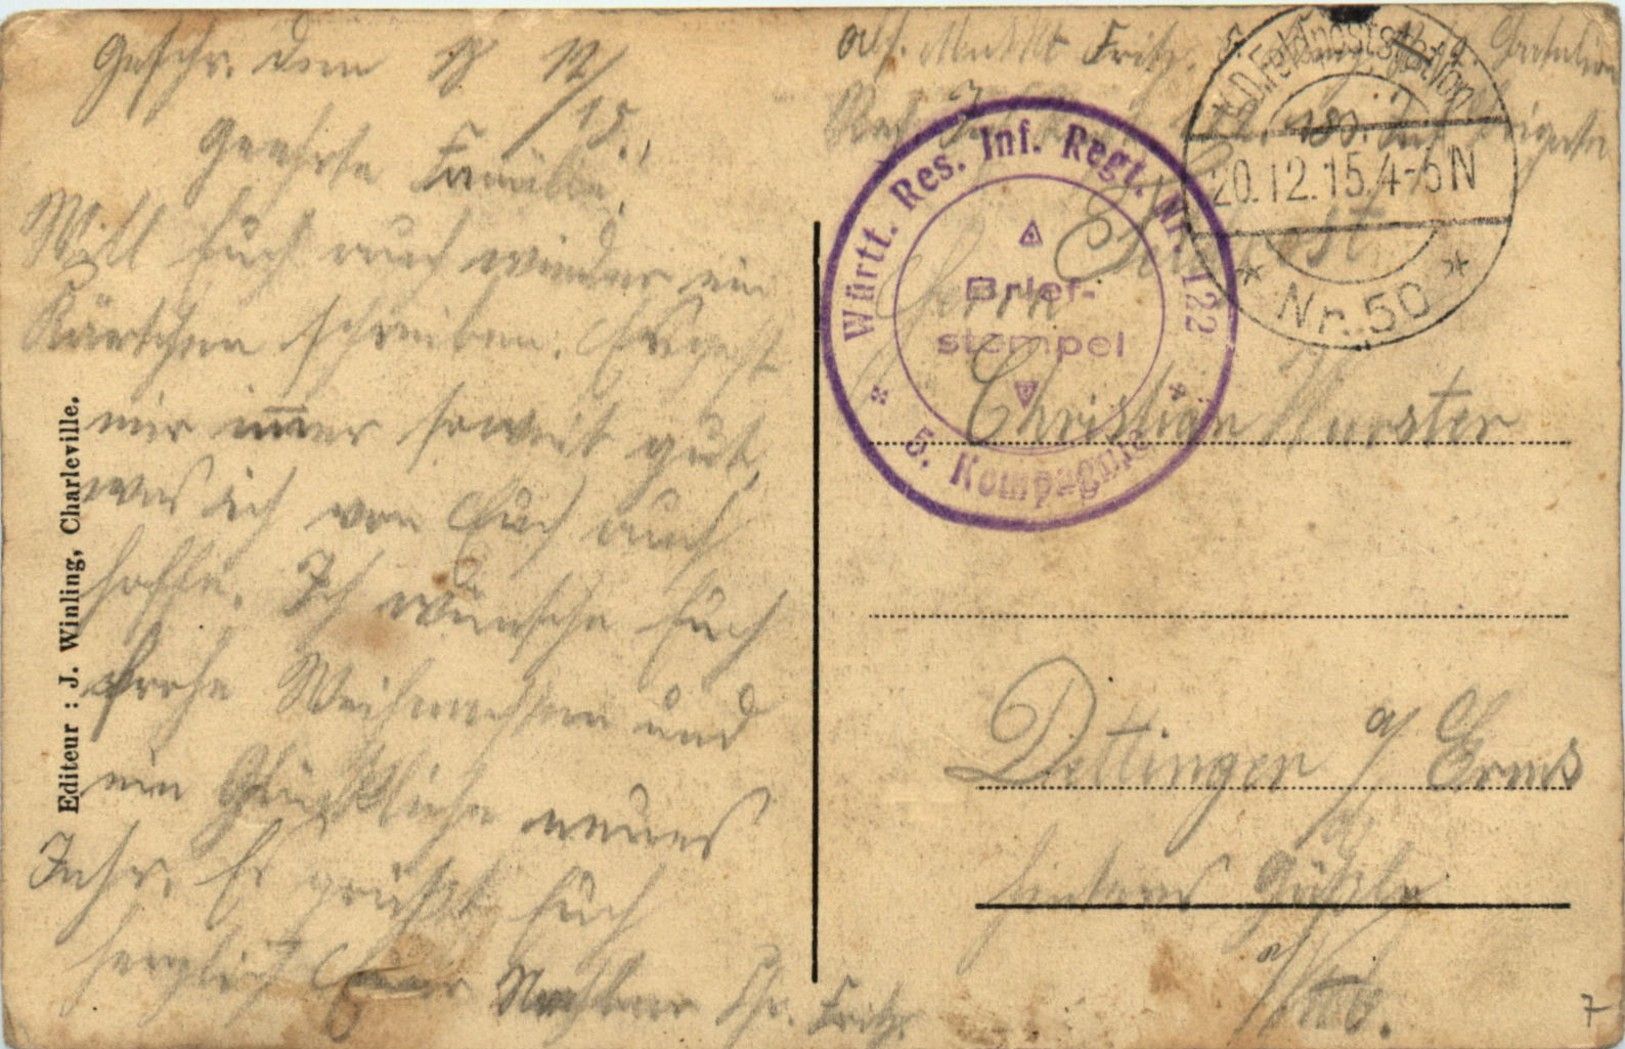 Geschr. dem 18 12/15.
Geehrte Familie,
Will Euch auch wieder ein
Kärtchen schreiben. Es geht
mir immer soweit gut,
was ich von Euch auch
hoffe. Ich wünsche Euch
Frohe Weihnachten und
ein Glückliche neues
Jahr. Es grüßt Euch
herzlich Euer Nachbar Chr. Fritz.
Editeur : J. Winling, Charleville.
Abs. Musk. Fritz.
Res. Inf. Regt. 122.
Feldpost
Württ. Res. Inf. Regt. Nr. 122
Brief-
stempel
5. Kompagnie
K.D. Feldpoststation
20.12.15.4-5N
* Nr. 50 *
Herrn
Christian Wurster
Dettingen a/ Erms
hintere Gäßle
Wttb.
7